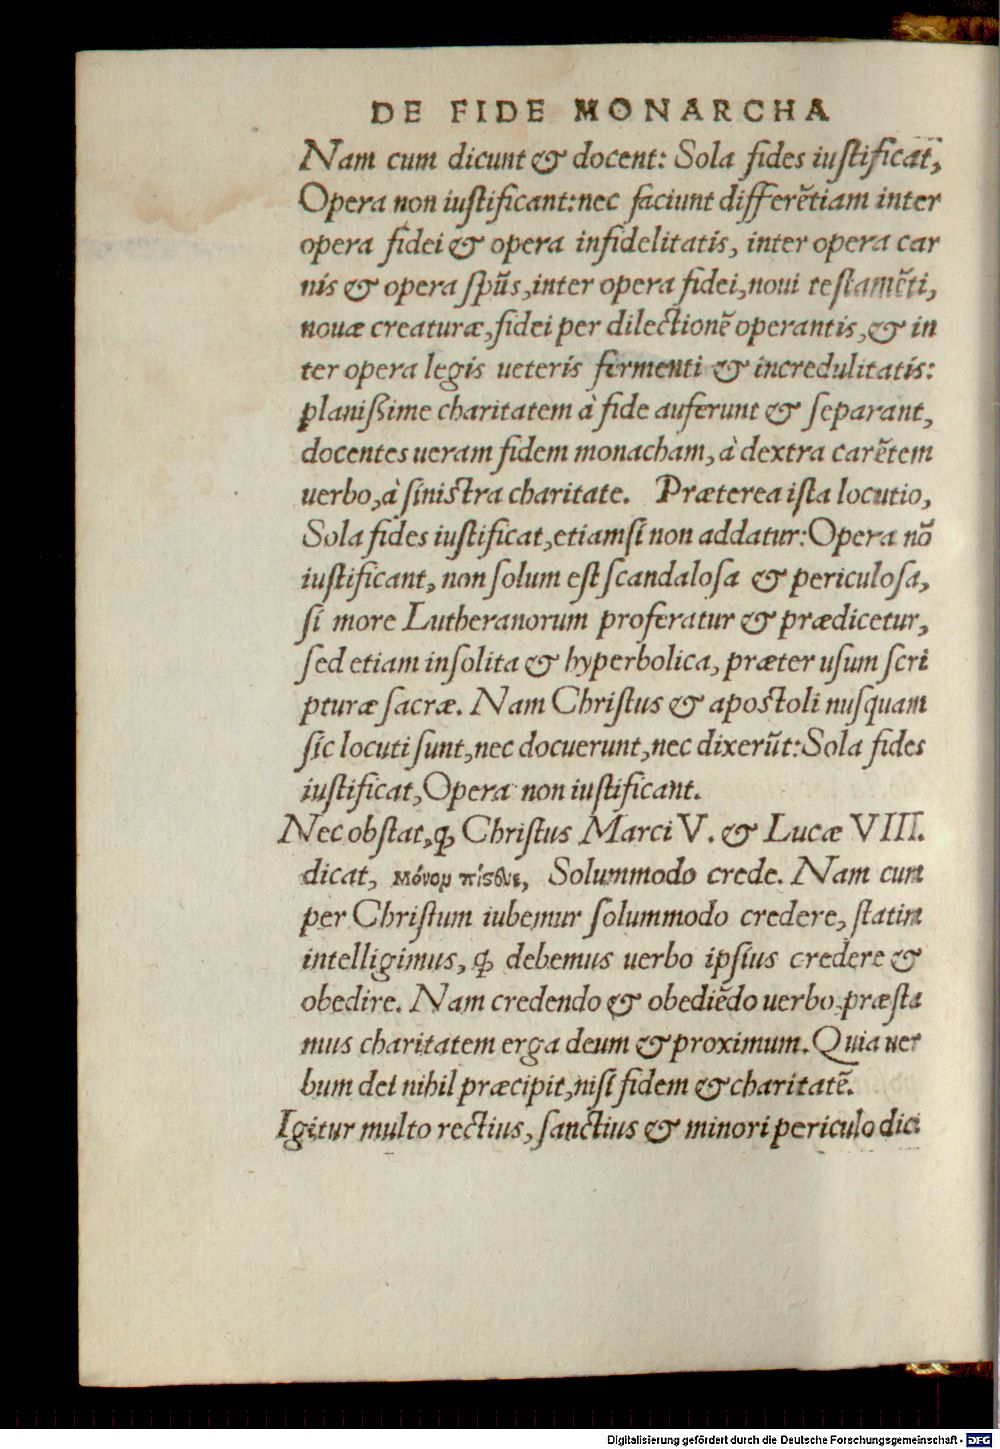 DE FIDE MONARCHA
Nam cum dicunt & docent: Sola fides iustificat,
Opera non iustificant: nec faciunt differētiam inter
opera fidei & opera infidelitatis, inter opera car
nis & opera sp̄us, inter opera fidei, noui testamēti,
nouæ creaturæ, fidei per dilectionē operantis, & in
ter opera legis ueteris fermenti & incredulitatis:
planißime charitatem à fide auferunt & separant,
docentes ueram fidem monacham, à dextra carētem
uerbo, à sinistra charitate. Præterea ista locutio,
Sola fides iustificat, etiamsi non addatur: Opera nō
iustificant, non solum est scandalosa & periculosa,
si more Lutheranorum proferatur & prædicetur,
sed etiam insolita & hyperbolica, præter usum scri
pturæ sacræ. Nam Christus & apostoli nusquam
sic locuti sunt, nec docuerunt, nec dixerūt: Sola fides
iustificat, Opera non iustificant.
Nec obstat, ꝙ Christus Marci V. & Lucæ VIII.
dicat, μόνον πίστευε, Solummodo crede. Nam cum
per Christum iubemur solummodo credere, statim
intelligimus, ꝙ debemus uerbo ipsius credere &
obedire. Nam credendo & obediēdo uerbo, præsta
mus charitatem erga deum & proximum. Quia uer
bum dei nihil præcipit, nisi fidem & charitatē.
Igitur multo rectius, sanctius & minori periculo dici
Digitalisierung gefördert durch die Deutsche Forschungsgemeinschaft - DFG